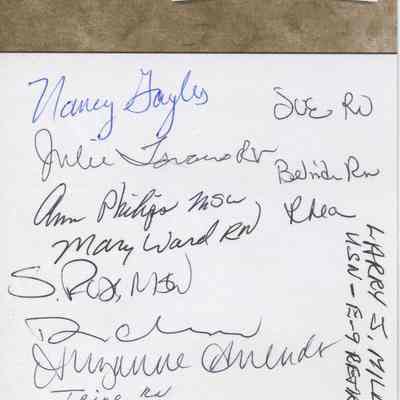 Nancy Gayles
Sue RN
Julie RN
Belinda Rn
Ann Philips MSW,
Rhea
Mary Ward RN
S. Rox, MSW
Suzanne
Irine RN
LARRY J. MIL
USN-E-9 RETR